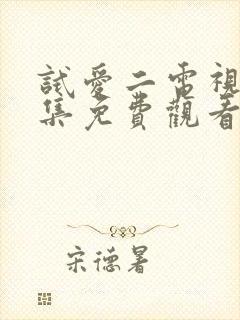 試愛二電視
集免費觀看
宋德暑